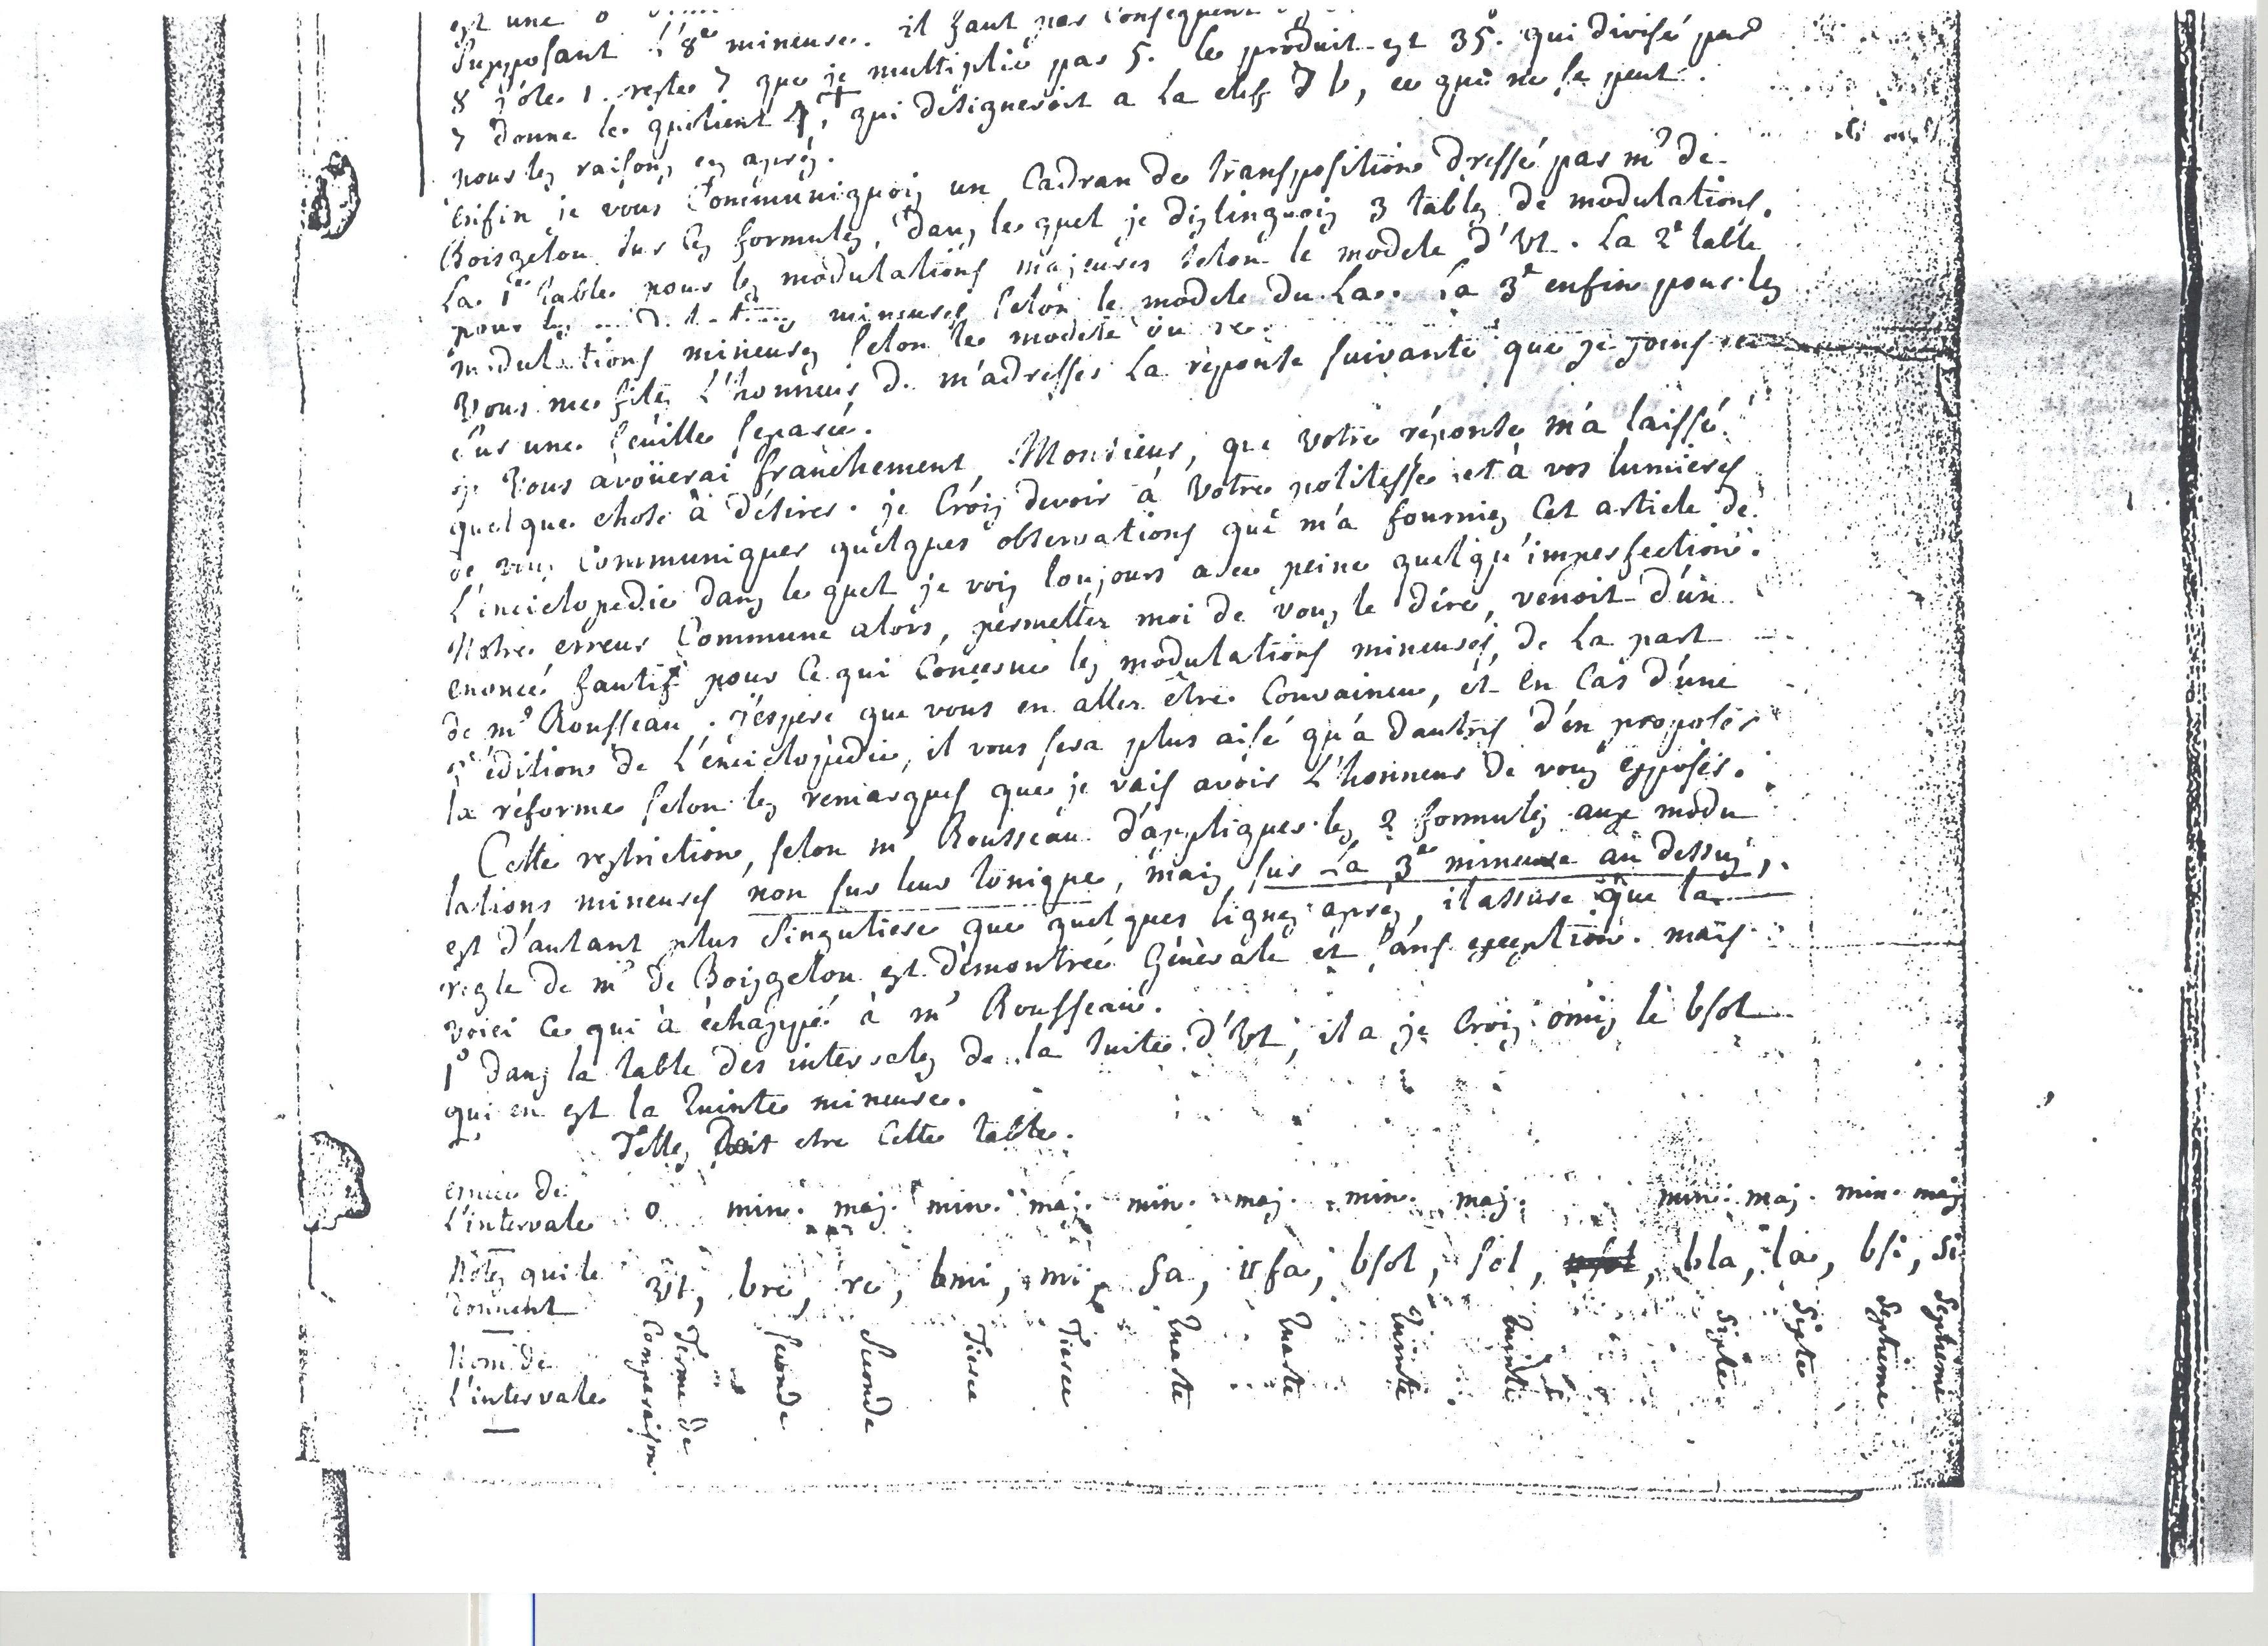 est une 8
Supposant L'8e mineure. il faut par Consequent
8 j'ôte 1. reste 7 que je multiplie par 5. le produit est 35. qui divisé par
7 donne le quotient qui designeroit a la clef b, ce qui ne se peut.
nous les raisons cy après.
enfin je vous Communiquois un Cadran de transposition dressé par mr de
Boisgelou sur ces formules, dans le quel je distinguois 3 tables de modulations.
La 1ere table pour les modulations majeures selon le modele d'Ut. La 2e table
pour les mineures selon le modele du La. La 3e enfin pour les
modulations mineures selon le modele du re.
Vous me fites L'honneur de m'adresser La reponse suivante que je joins
sur une feuille separée.
je Vous avoüerai franchement, Monsieur, que votre réponse m'a laissé
quelque chose à désirer. je Crois devoir à Votre politesse et à vos lumieres
de vous Communiquer quelques observations que m'a fournies Cet article de
L'enciclopedie dans le quel je vois toujours avec peine quelqu'imperfection.
Notre erreur Commune alors, permettez moi de vous le dire, venoit d'un
enoncé fautif pour Ce qui Concerne les modulations mineures, de La part
de mr Rousseau. j'espere que vous en allez être Convaincu, et en Cas d'une
édition de L'enciclopedie, il vous sera plus aisé qu'à d'autres d'en proposer
la réforme selon les remarques que je vais avoir L'honneur de vous exposer.
Cette restriction, selon mr Rousseau d'appliquer les 2 formules aux modu
lations mineures non sur leur tonique, mais sur La 3e mineure au dessus,
est d'autant plus singuliere que quelques lignes après, il assure que la
regle de mr de Boisgelou est démontrée Générale et sans exception. mais
voici Ce qui à échappé à mr Rousseau.
1° dans la table des intervales de la suite d'Ut, il a je Crois omis le b sol
qui en est la Quinte mineure.
Telle Doit etre Cette table.
de L'intervale 0 min. maj. min. maj. min. maj. min. maj. min. maj. min. maj
Notes qui le donnent Ut, b re, re, b mi, mi, fa, # fa, b sol, sol, b la, la, b si, si
Nom de L'intervale Terme de Comparaison. Seconde Seconde Tierce Tierce Quarte Quarte Quinte Quinte Sixte Sixte Septieme Septieme